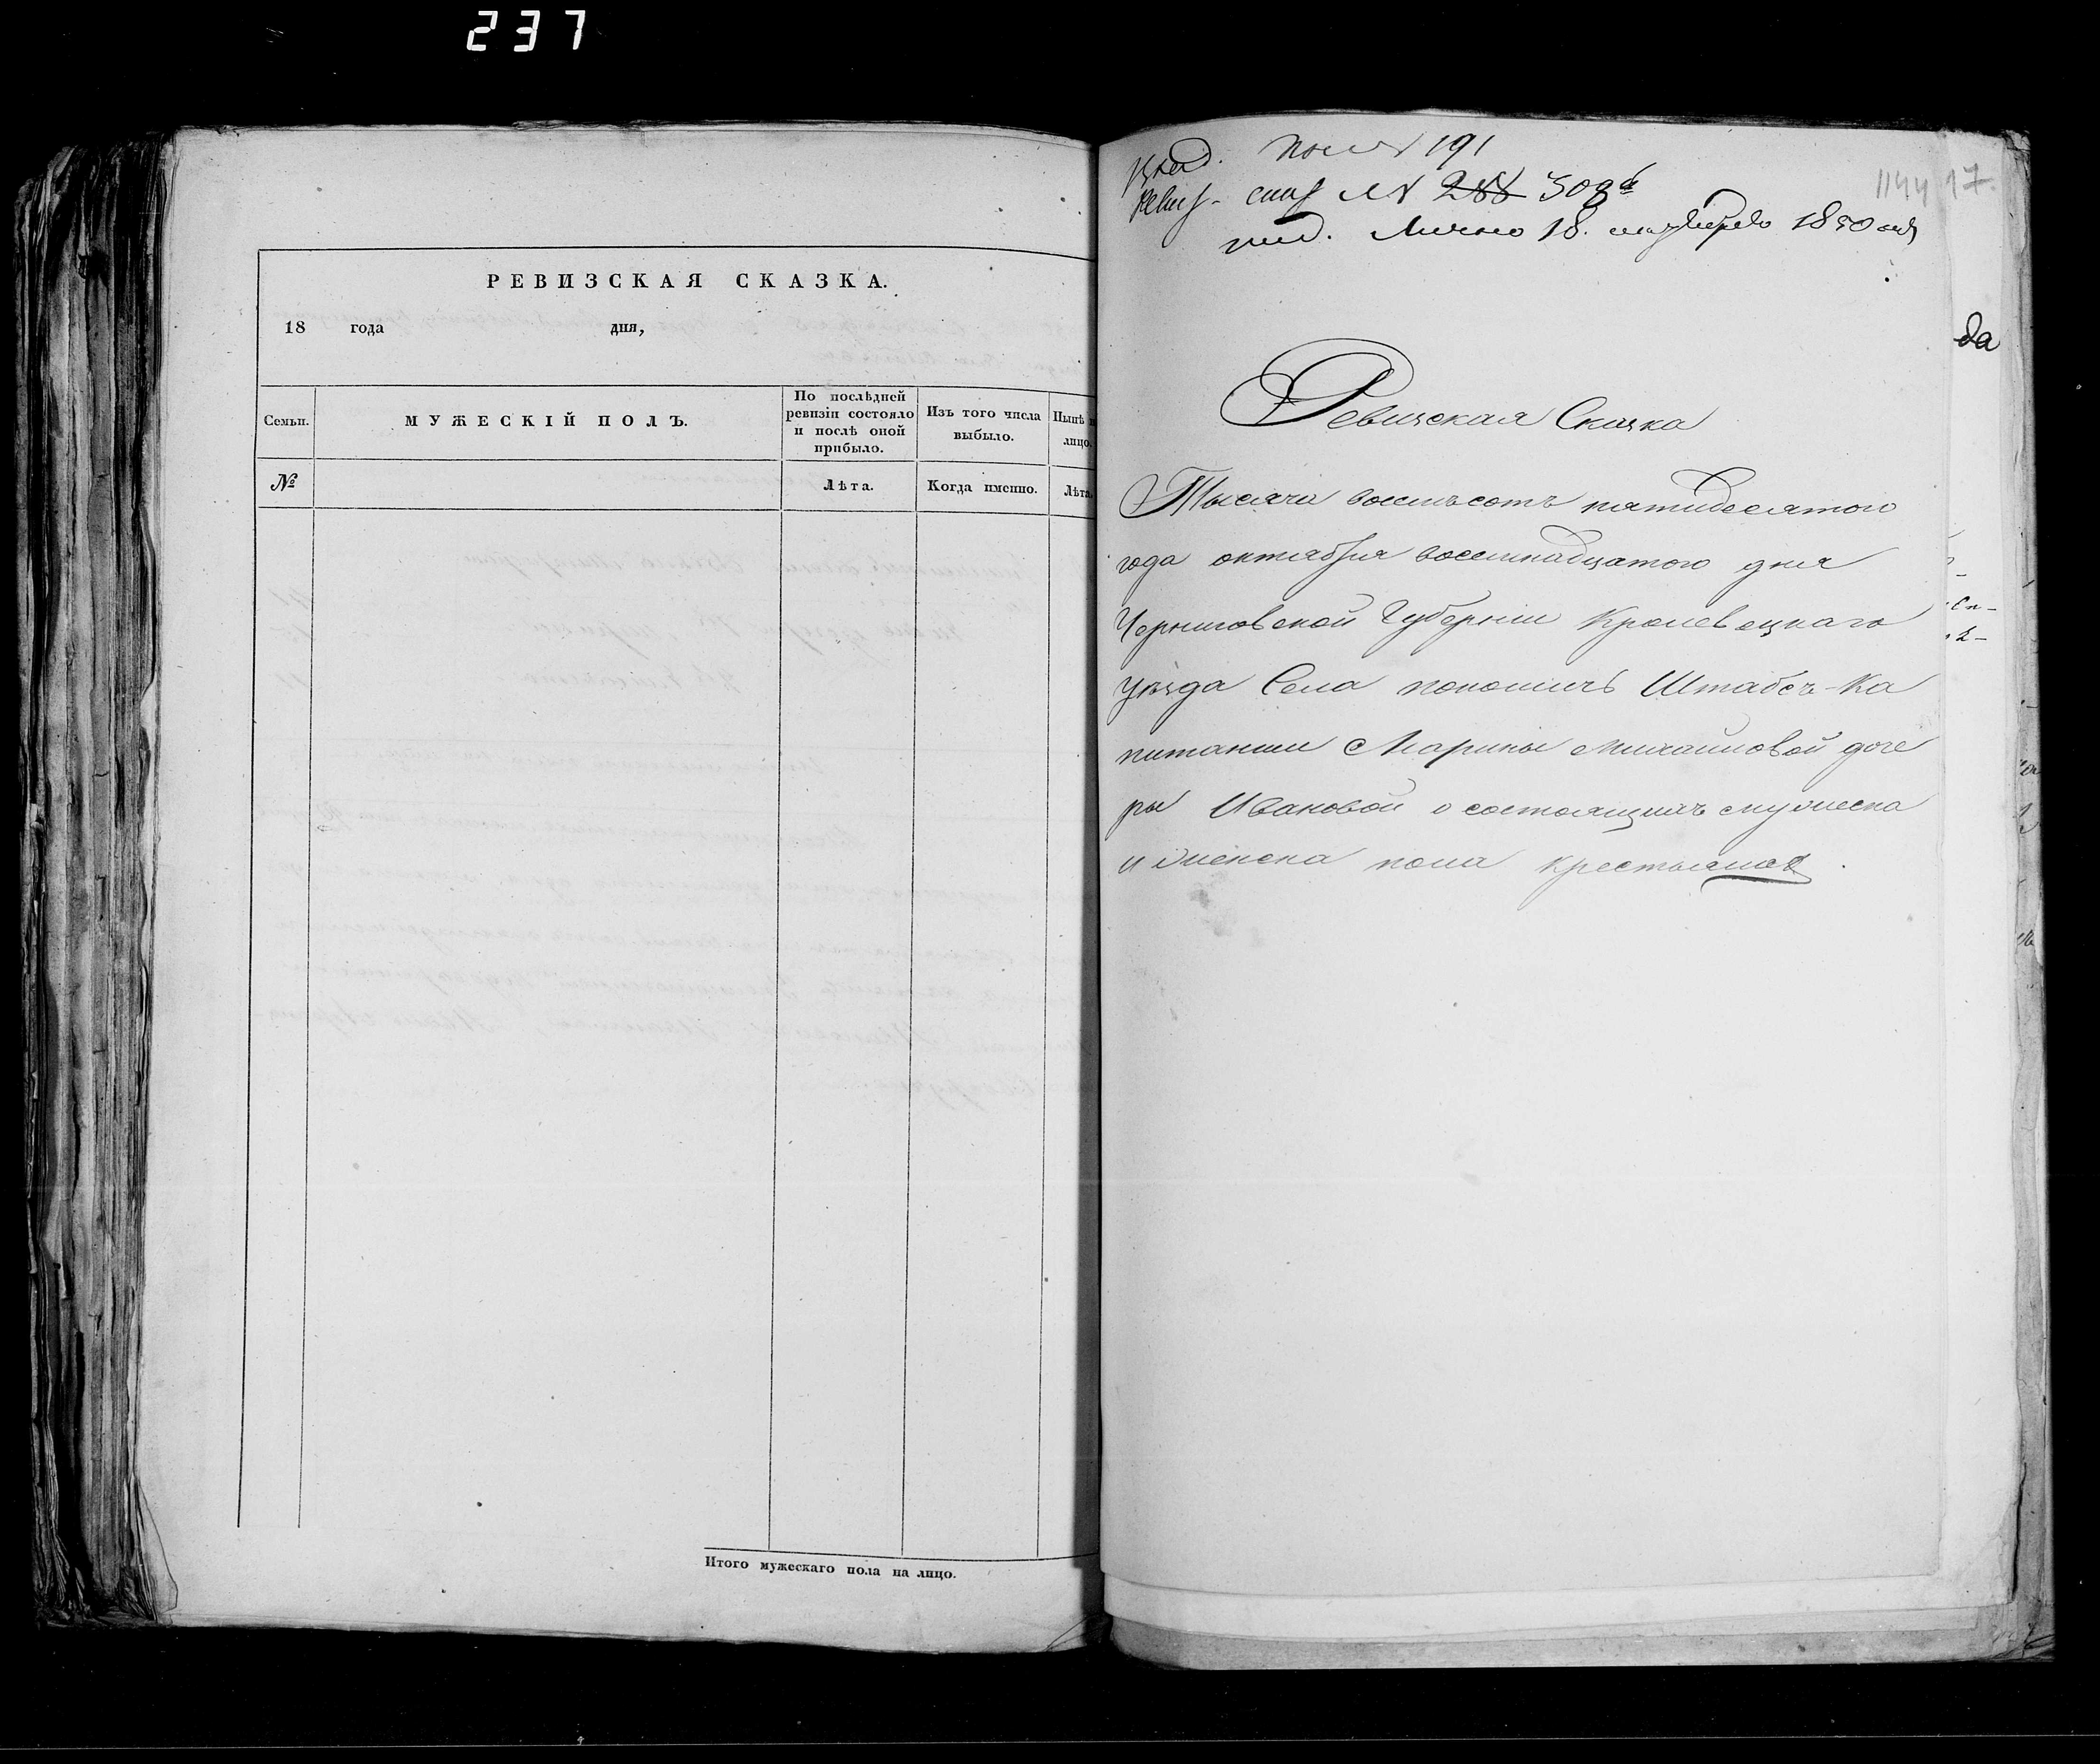 237
РЕВИЗСКАЯ СКАЗКА.
18 года дня,
Семьи.
МУЖЕСКІЙ ПОЛЪ.
По послѣдней
ревизіи состояло
и послѣ оной
прибыло.
Изъ того числа
выбыло.
Нынѣ
лицо.
№
Лѣта.
Когда именно.
Лѣта.
Итого мужескаго пола на лицо.
191
288 309
Лично 18. октября 1850
1144 17.
да
Ревизская Сказка
Тысяча восемьсотъ пятидесятого
года октября восемнадцатого дня
Черниговской Губерніи Кролевецкаго
уѣзда Села Штабсъ-Ка
питанши Марины Михайловой доче
ры Ивановой о состоящихъ мужеска
и женска пола крестьянах